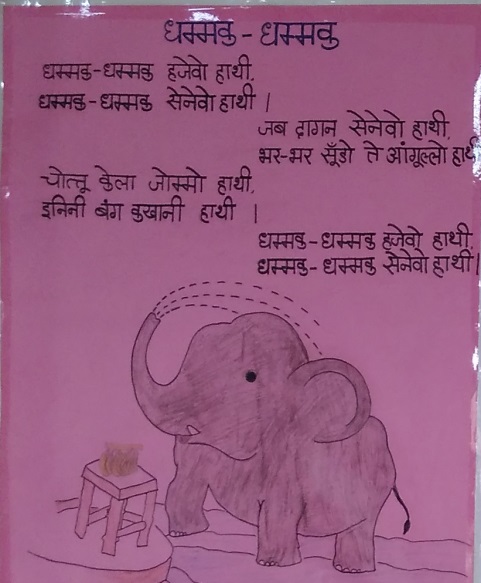 धम्मक - धम्मक
धम्मक-धम्मक हजेवो हाथी,
धम्मक-धम्मक सेनेवो हाथी |
जब दागन सेनेवो हाथी,
भर-भर सूँडो ते आंगूल्लो हाथी
चोत्लू केला जोम्मो हाथी,
इनिनी बंग कुखानी हाथी |
धम्मक-धम्मक हजेवो हाथी,
धम्मक-धम्मक सेनेवो हाथी |